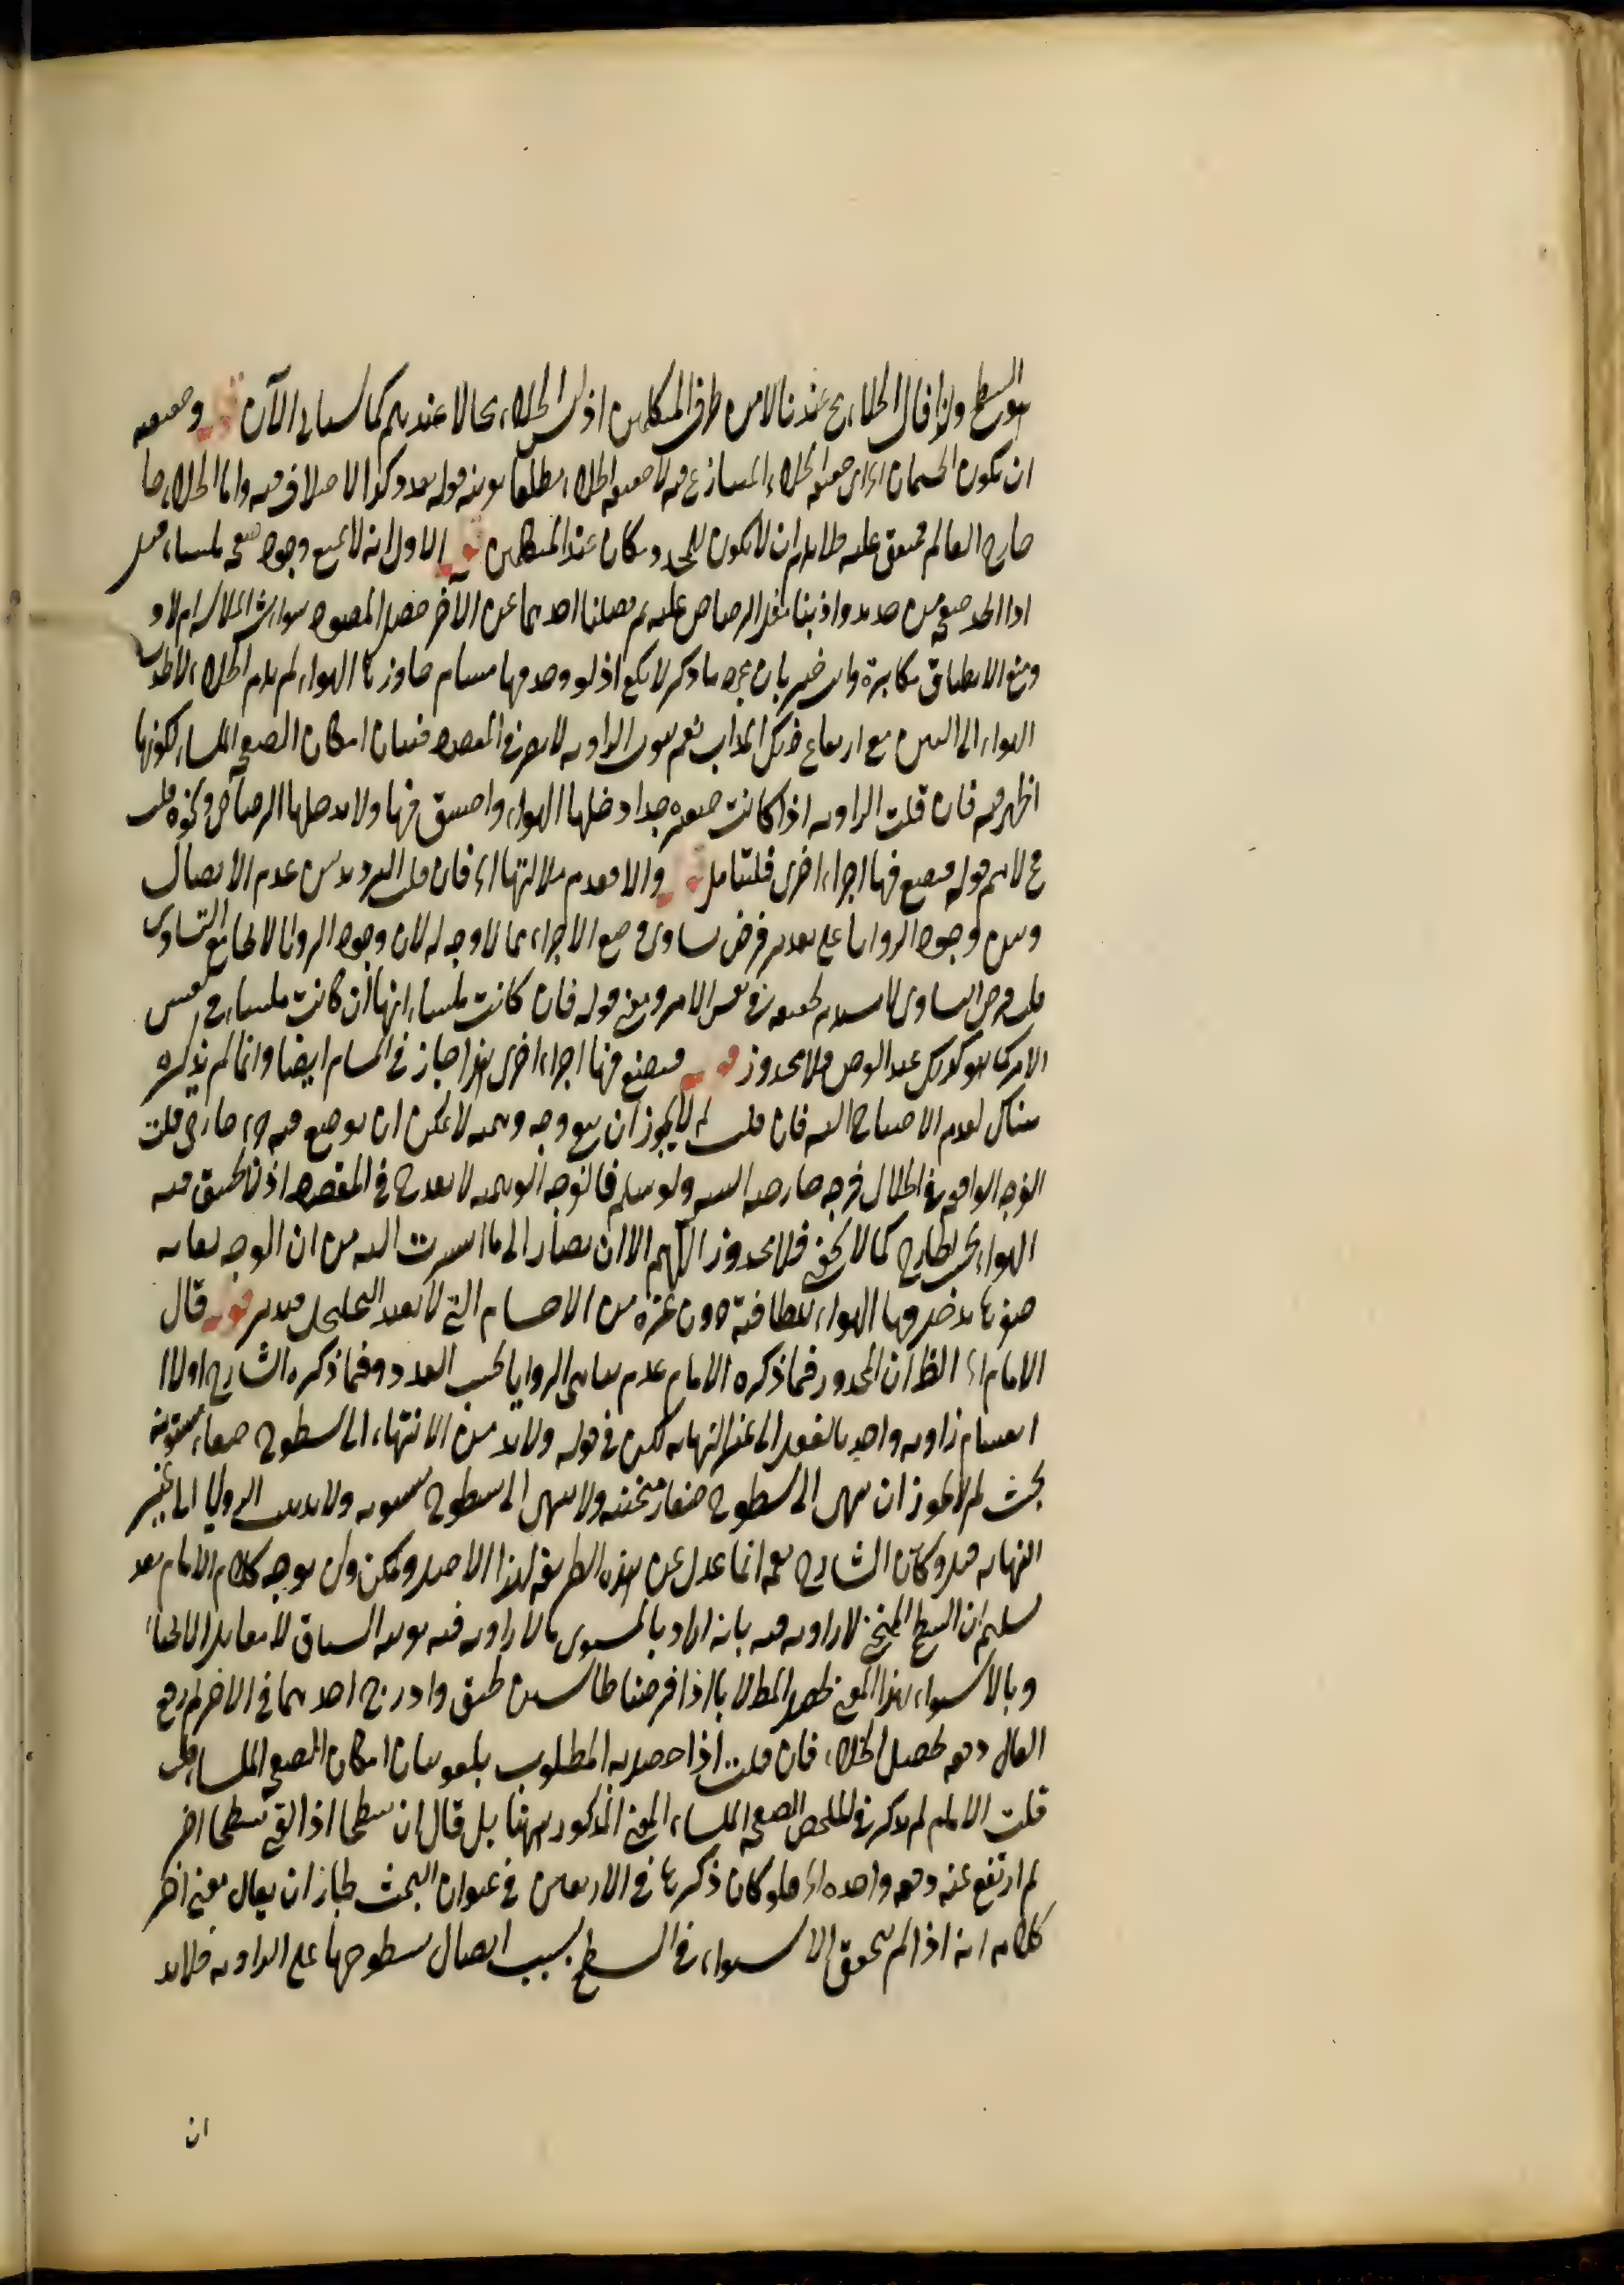 هو السطح ولذا قال الخلاء مح عندنا لا من طرف المتكلمين اذ ليس الخلاء محالا عندهم كما سيأتي الآن قوله وحقيقته
ان يكون الجسمان اه اى حقيقة الخلاء المتنازع فيه لا حقيقة الخلاء مطلقا بقرينة قوله بعد وكذا الاختلاف فيه واما الخلاء خا
خارج العالم فمتفق عليه فلا يلزم ان لا يكون للمحدد مكان عند المتكلمين قوله الاول انه لا يمتنع وجود صفحة ملساء قيل
اذا اتخذ صفحة من حديد واذبنا مقدار الرصاص عليه ثم فصلنا احدهما عن الآخر حصل المقصود سواء
ومنع الانطباق مكابرة وانت خبير بان مجرد ما ذكر لا يكفي اذ لو وجد فيها مسام جاوزها الهواء لم يلزم الخلاء
الهواء الى البين مع ارتفاع ذلك المذاب نعم الزاوية لا يضر في المقصود فبيان امكان الصفحة الملساء لكونها
اظهر فيه فان قلت الزاوية اذا كانت صغيرة جدا دخلها الهواء واحتبس فيها ولا يدخلها الرصاص ونحوه قلت
فح لا يتم قوله فيقع فيها اجزاء اخرى فليتأمل قوله والا فعدم الانتهاء اه فان قلت الترديد بين عدم الاتصال
وبين وجود الزوايا على تقدير فرض تساوى وضع الاجزاء مما لا وجه له لان وجود الزوايا لا يجامع التساوى
قلت فرض التساوى لا يستلزم تحققه في نفس الامر ومعنى قوله فان كانت ملساء انها ان كانت ملساء في نفس
الامر كما هو كذلك عند الفرض فلا محذور قوله فيقع فيها اجزاء اخرى هذا جاز في المسام ايضا وانما لم يذكره
هناك لعدم الاحتياج اليه فان قلت لم لا يجوز ان يبقى وجه وهمية لا يمكن ان يوضع فيه جزء خارجى قلت
الفرجة الواقعة في الخلال فرجة خارجية البتة ولو سلم فالفرجة الوهمية لا يقدح في المقصود اذ لا يتحقق فيه
الهواء بحسب الخارج كما لا يخفى فلا محذور اللهم الا ان يصار الى ما اشرت اليه من ان الفرجة لغاية
صغرها يدخل فيها الهواء للطافته دون غيره من الاجسام التي لا فتدبر قوله قال
الامام اه الظ ان المحذور فيما ذكره الامام عدم تناهى الزوايا بحسب العدد وفيما ذكره الشارح اولا
انقسام زاوية واحدة بالفعل الى غير النهاية لكن في قوله ولا بد من الانتهاء الى سطوح صغار مستوية
بحث لم لا يجوز ان ينتهى الى سطوح صغار منحنية ولا ينتهى الى سطوح مستوية ولا يذهب الزوايا الى غير
النهاية قيل وكأن الشارح انما عدل عن هذه الطريقة لهذا الاصل ويمكن ان يوجه كلام الامام بعد
تسليم ان السطح المنحنى لا زاوية فيه بانه اراد بالمستوى ما لا زاوية فيه بقرينة السياق لا مقابل الانحناء
وبالاستواء بهذا المعنى يظهر المطلوب اذا فرضنا طاسين طبق وادرج احدهما في الآخر ثم رفع
العالى دفعة يحصل الخلاء فان قلت اذا حصل به المطلوب يلغو بيان امكان الصفحة الملساء قلت
قلت الامام لم يذكر في الملخص الصفحة الملساء بالمعنى المذكور ههنا بل قال ان سطحا اذا لقى سطحا آخر
ثم ارتفع عنه دفعة واحدة اه فلو كان ذكرها في الاربعين في عنوان البحث جاز ان يقال معنى آخر
كلامه انه اذا لم يتحقق الاستواء في السطح بسبب اتصال سطوحها على الزاوية فلا بد
ان